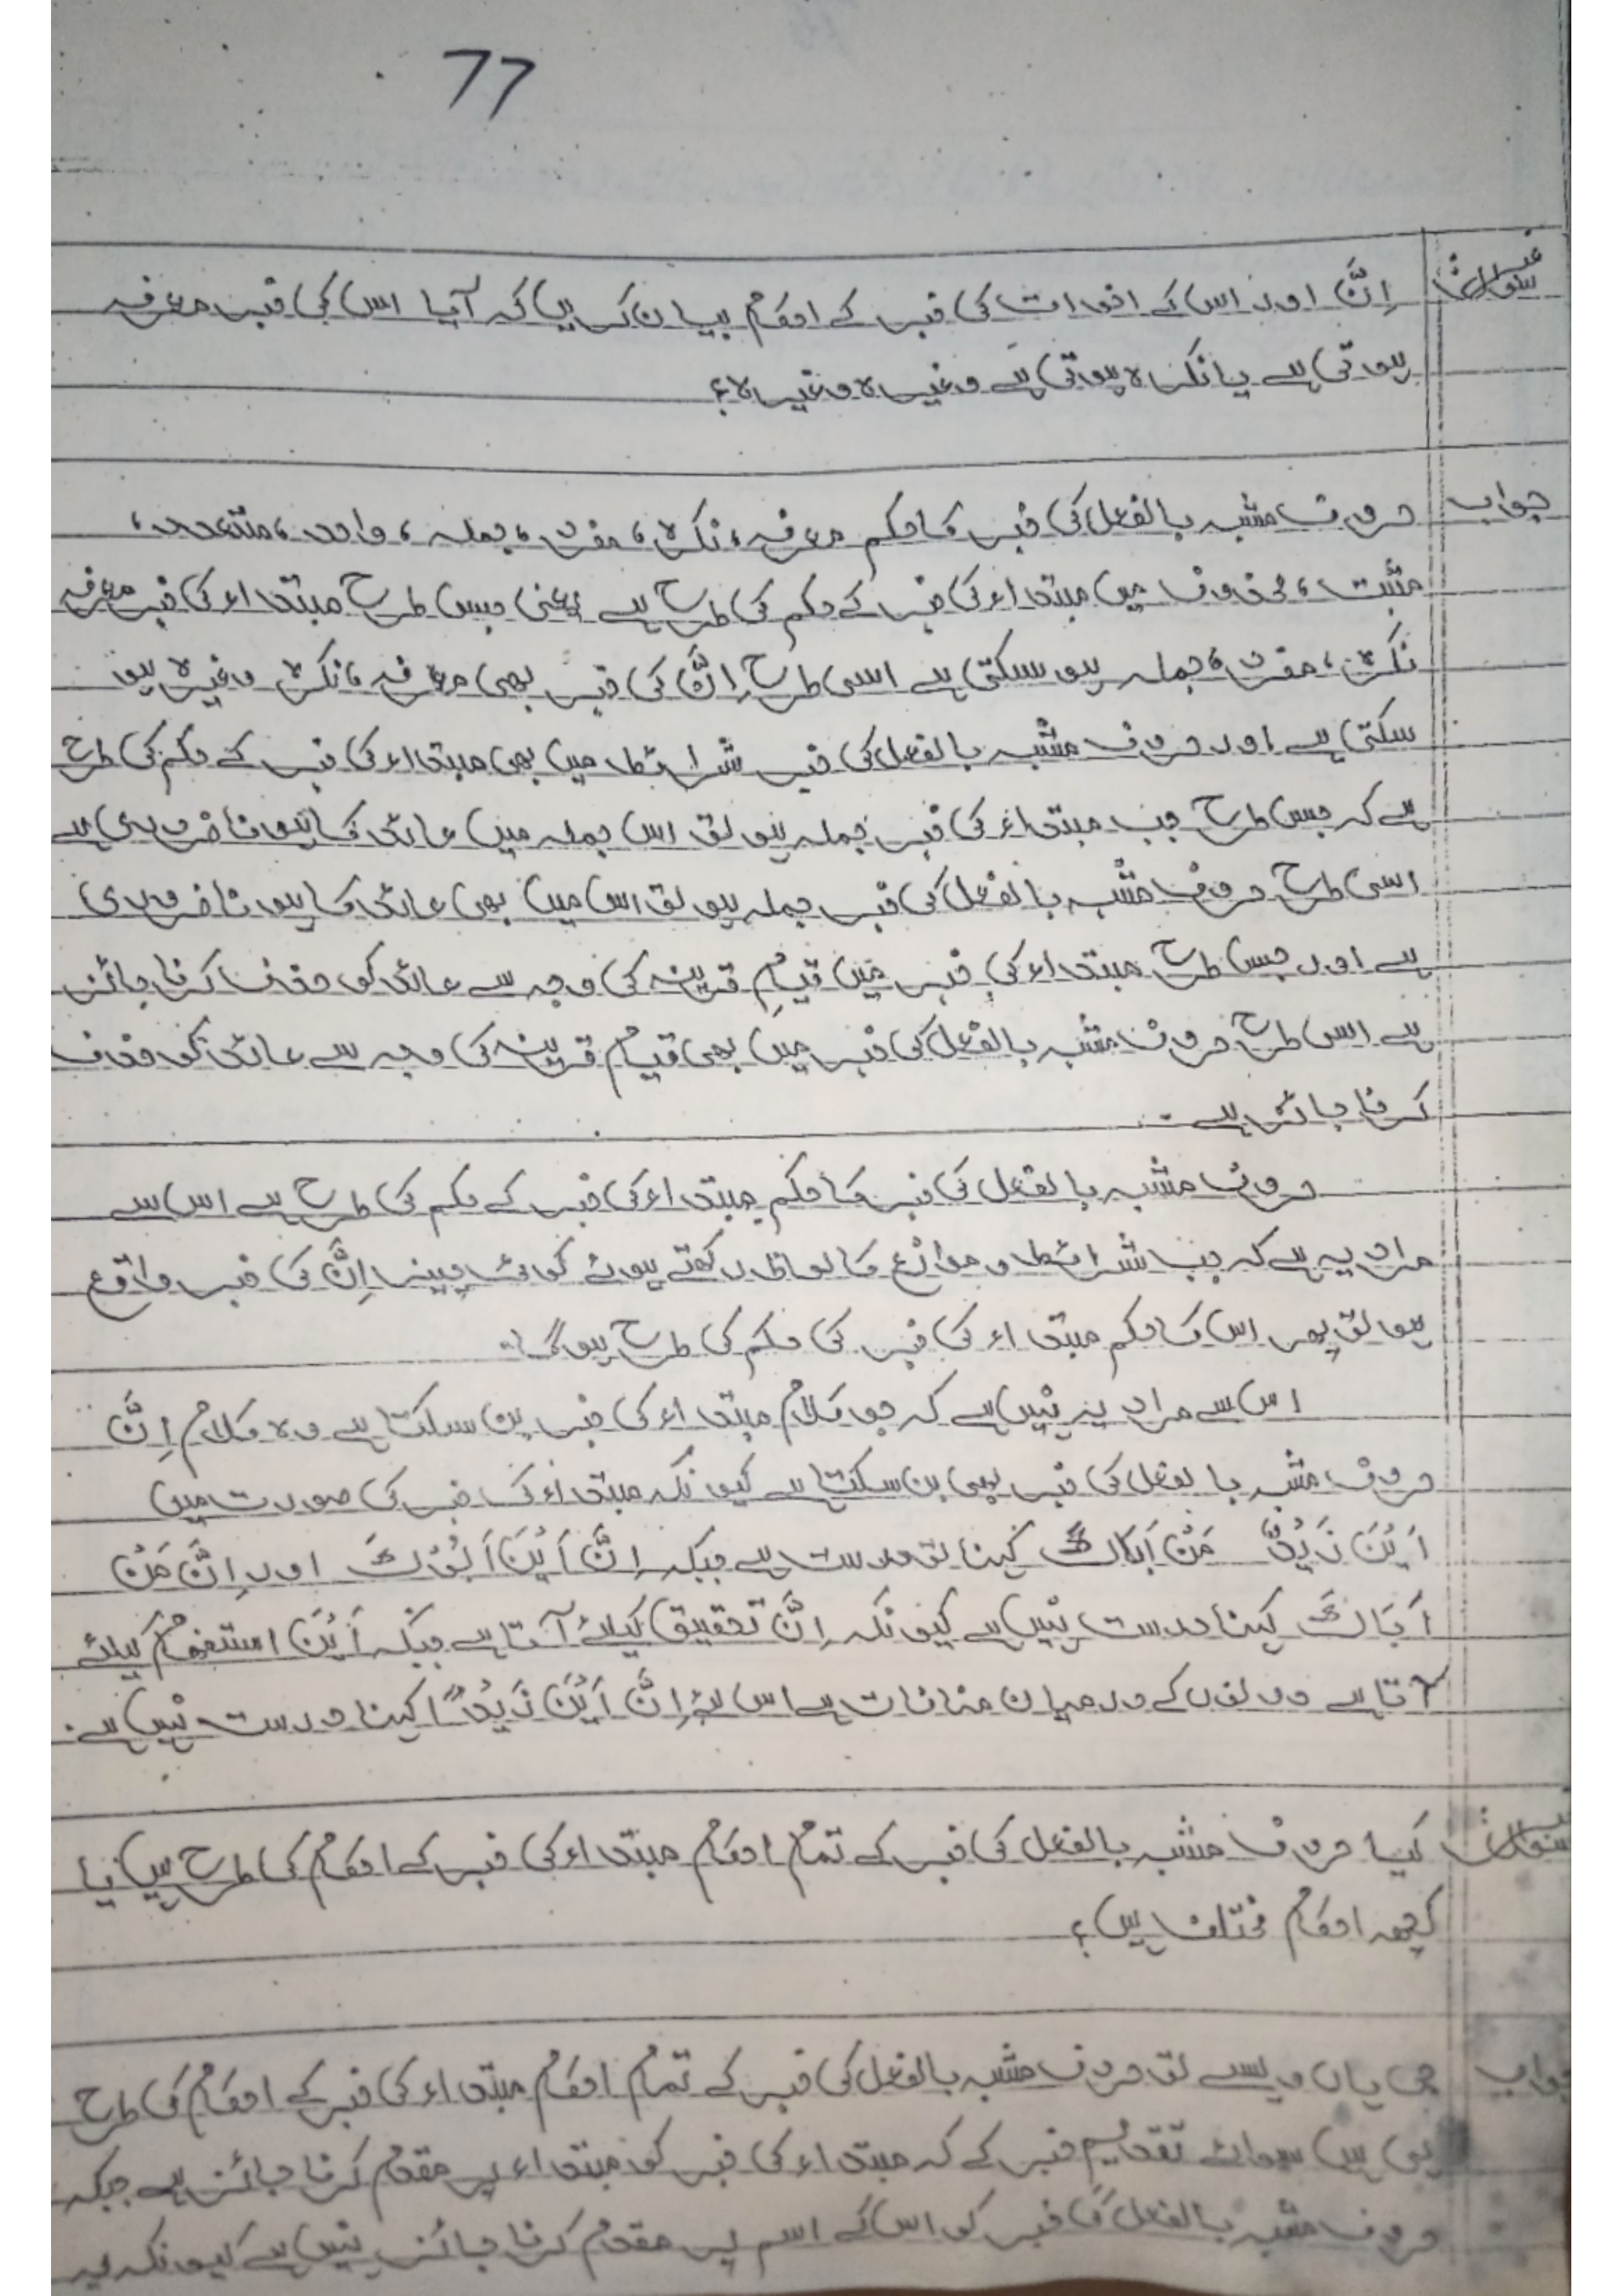 77
سوال: اِنَّ اور اس کے اخوات کی خبر کے احکام بیان کریں کہ آیا اس کی خبر معرفہ
ہوتی ہے یا نکرہ ہوتی ہے وغیرہ وغیرہ؟
جواب حروف مشبہ بالفعل کی خبر کا حکم معرفہ، نکرہ، مفرد، جملہ، واحد، متعدد،
مثبت، محذوف میں مبتداء کی خبر کے حکم کی طرح ہے یعنی جس طرح مبتداء کی خبر معرفہ
نکرہ، مفرد، جملہ ہو سکتی ہے اسی طرح اِنَّ کی خبر بھی معرفہ، نکرہ وغیرہ ہو
سکتی ہے اور حروف مشبہ بالفعل کی خبر شرائط میں بھی مبتداء کی خبر کے حکم کی طرح
ہے کہ جس طرح جب مبتداء کی خبر جملہ ہو تو اس جملہ میں عائد کا ہونا ضروری ہے
اسی طرح حروف مشبہ بالفعل کی خبر جملہ ہو تو اس میں بھی عائد کا ہونا ضروری
ہے اور جس طرح مبتداء کی خبر میں قیامِ قرینہ کی وجہ سے عائد کو حذف کرنا جائز
ہے اسی طرح حروف مشبہ بالفعل کی خبر میں بھی قیام قرینہ کی وجہ سے عائد کو حذف
کرنا جائز ہے۔
حروف مشبہ بالفعل کی خبر کا حکم مبتداء کی خبر کے حکم کی طرح ہے اس سے
مراد یہ ہے کہ جب شرائط و موانع کا لحاظ رکھتے ہوئے کوئی چیز اِنَّ کی خبر واقع
ہو تو پھر اس کا حکم مبتداء کی خبر کی حکم کی طرح ہو گا۔
اس سے مراد یہ نہیں ہے کہ جو کلام مبتداء کی خبر بن سکتا ہے وہ کلام اِنَّ
حروف مشبہ با لفعل کی خبر بھی بن سکتا ہے کیونکہ مبتداء کی خبر کی صورت میں
اَیْنَ زَیْدٌ مَنْ اَبَاكَ کہنا تو درست ہے جبکہ اِنَّ اَیْنَ اَبُوْكَ اور اِنَّ مَنْ
اَبَاكَ کہنا درست نہیں ہے کیونکہ اِنَّ تحقیق کیلئے آتا ہے جبکہ اَیْنَ استفہام کیلئے
آتا ہے دونوں کے درمیان منافات ہے اس لئے اِنَّ اَیْنَ زَیْدًا کہنا درست نہیں ہے۔
سوال: کیا حروف مشبہ بالفعل کی خبر کے تمام احکام مبتداء کی خبر کے احکام کی طرح ہیں یا
کچھ احکام مختلف ہیں؟
جواب جی ہاں ویسے تو حروف مشبہ بالفعل کی خبر کے تمام احکام مبتداء کی خبر کے احکام کی طرح
ہی ہیں سوائے تقدیمِ خبر کے کہ مبتداء کی خبر کو مبتداء پر مقدم کرنا جائز ہے جبکہ
حروف مشبہ بالفعل کی خبر کو اس کے اسم پر مقدم کرنا جائز نہیں ہے کیونکہ یہ